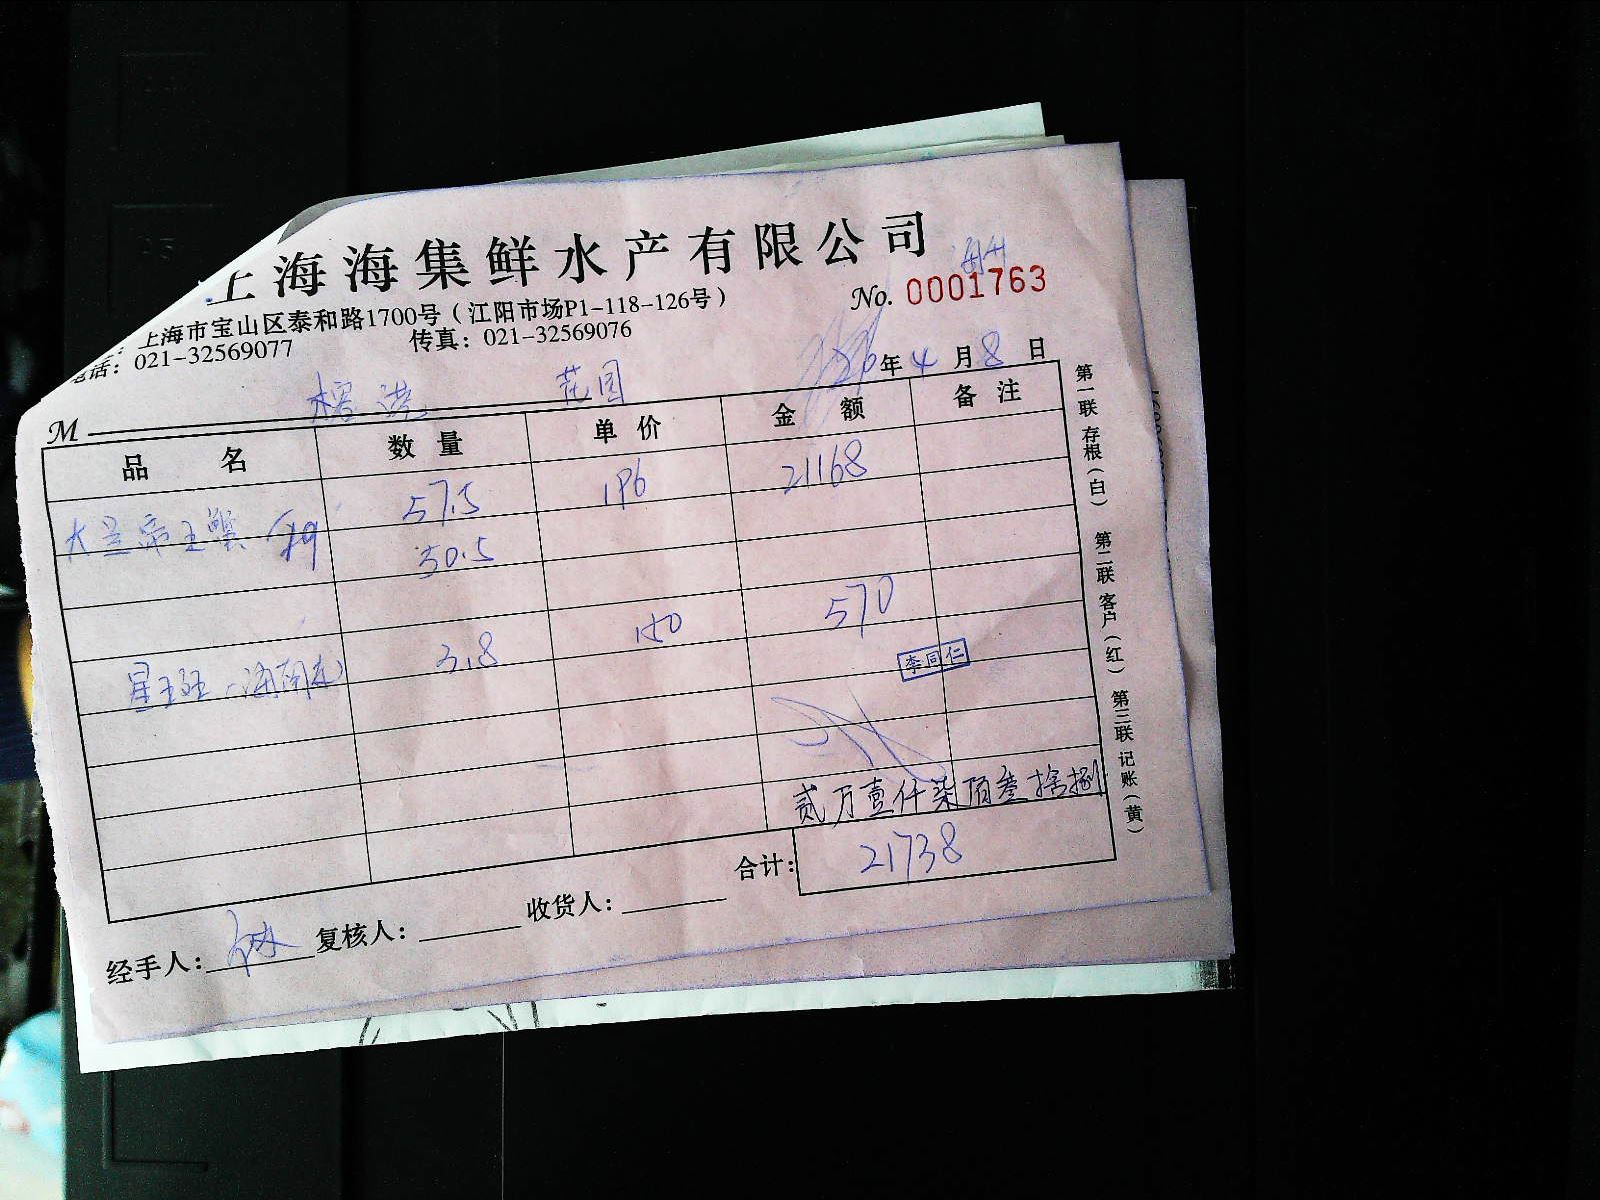 上海海集鲜水产有限公司
No. 0001763
上海市宝山区泰和路1700号（江阳市场P1-118-126号）
电话：021-32569077 传真：021-32569076
年 4 月 8 日
花园
M
品名 数量 单价 金额 备注
大兰帝王蟹 57.5 196 21168
50.5
星斑 3.8 150 570
李同仁
贰万壹仟柒陌叁拾捌
合计： 21738
经手人： 复核人： 收货人：
第一联 存根（白） 第二联 客户（红） 第三联 记账（黄）